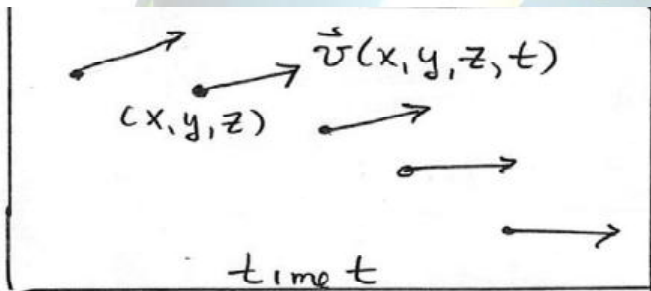 v⃗(x,y,z,t)
(x,y,z)
time t